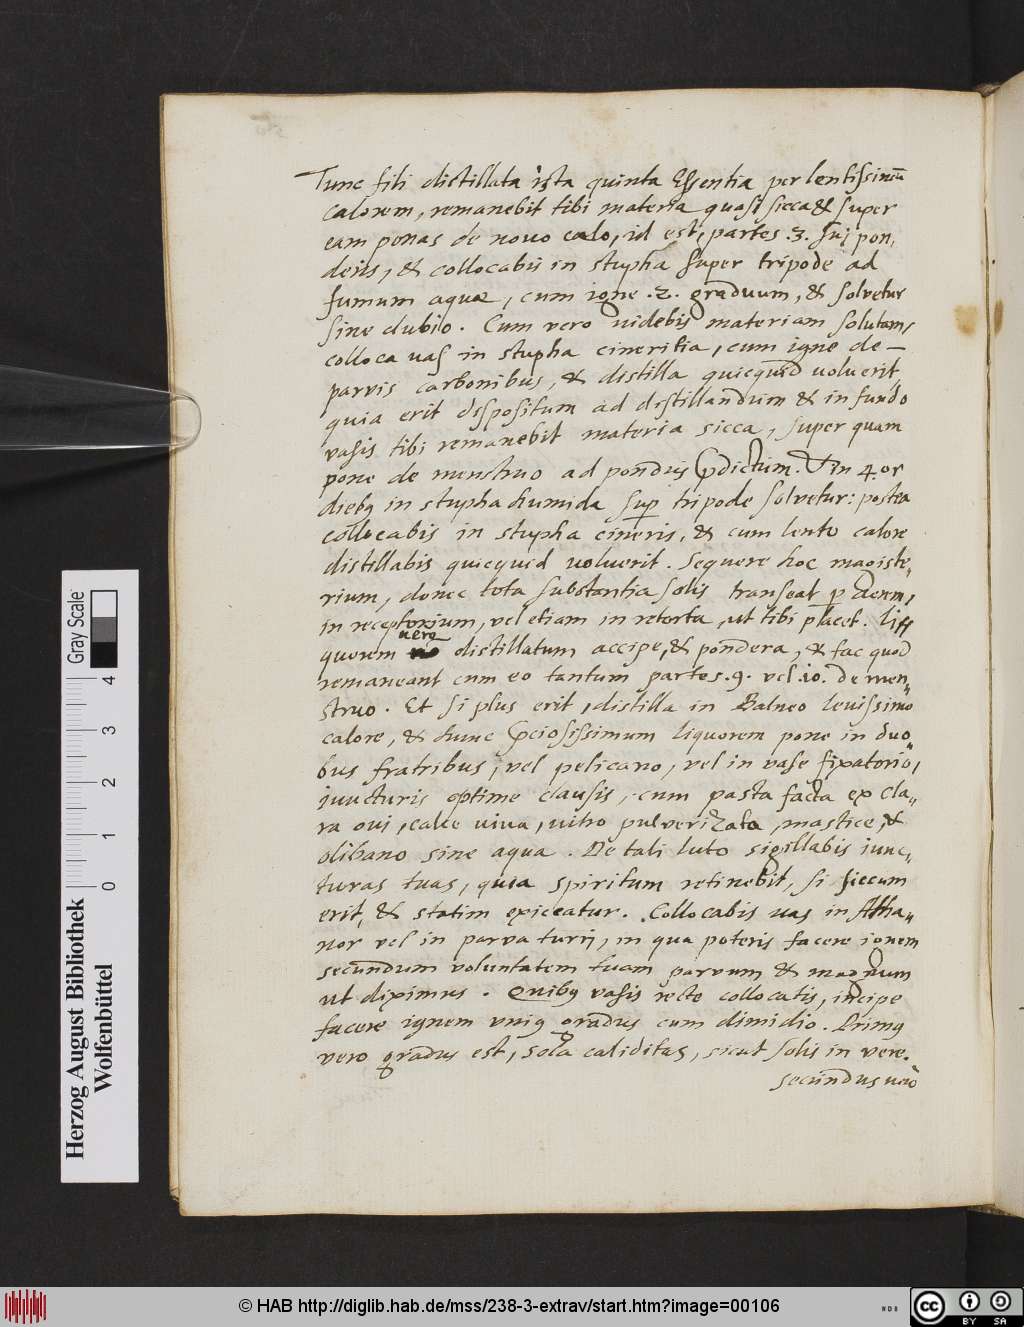 Tunc fili distillata ista quinta Essentia per lentissimũ
calorem, remanebit tibi materia quasi sicca & super
eam ponas de novo cælo, id est, partes .3. sui pon„
deris, & collocabis in stupha super tripode ad
fumum aquæ, cum igne .2. graduum, & solvetur
sine dubio. Cum vero videbis materiam solutam,
colloca vas in stupha cineritia, cum igne de —
parvis carbonibus, & distilla quicquid voluerit,
quia erit dispositum ad distillandum & in fundo
vasis tibi remanebit materia sicca, super quam
pone de menstruo ad pondus p̃dictum. & in 4.or
dieb9 in stupha humida sup̱ tripode solvetur: postea
collocabis in stupha cineris, & cum lento calore
distillabis quicquid voluerit. Sequere hoc magiste„
rium, donec tota substantia solis transeat p̱
in receptorium, vel etiam in retorta, ut tibi placet. Li
quorem vero distillatum accipe, & pondera, & fac quod
remaneant cum eo tantum partes .9. vel .10. de men„
struo. Et si plus erit, distilla in Balneo levissimo
calore, & hunc p̃ciosissimum liquorem pone in duo„
bus fratribus, vel pelicano, vel in vase fixatorio,
iuncturis optime clausis, cum pasta facta ex cla„
ra ovi, calce viva, vitro pulverizato, mastice, &
olibano sine aqua. De tali luto sigillabis iunc„
turas tuas, quia spiritum retinebit, si siccum
erit, & statim exiccatur. Collocabis vas in Atha„
nor vel in parva turri, in qua poteris facere ignem
secundum voluntatem tuam parvum & magnum
ut diximus. Quib9 vasis recte collocatis, incipe
facere ignem uni9 gradus cum dimidio. Prim9
vero gradus est, sola caliditas, sicut solis in vere.
secundus verò
Herzog August Bibliothek
Wolfenbüttel
Gray Scale
0 1 2 3 4
© HAB http://diglib.hab.de/mss/238-3-extrav/start.htm?image=00106
cc BY SA